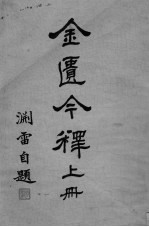 金匱今釋上册
淵雷自題